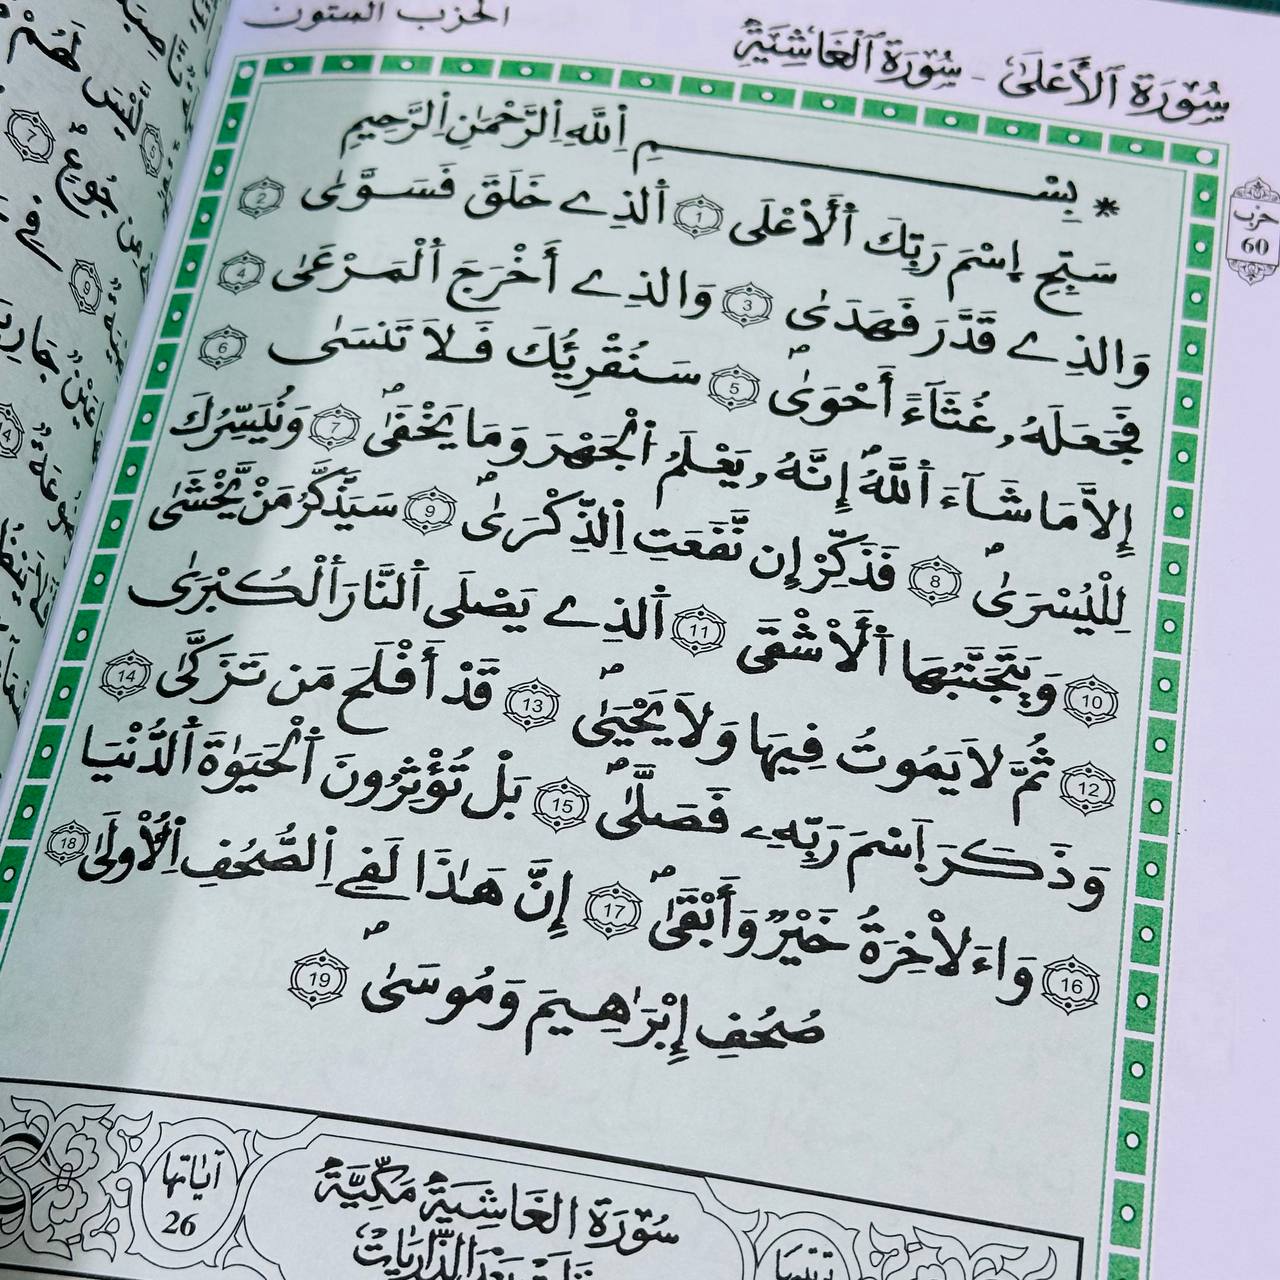 سُورَةُ اُلْأَعْلَىٰ - سُورَةُ اُلْغَاشِيَةِ
الحزب الستون
حزب
60
* بِسْمِ اِللَّهِ اِلرَّحْمَٰنِ اِلرَّحِيمِ
سَبِّحِ إِسْمَ رَبِّكَ اَلْأَعْلَى 1 اَلذِے خَلَقَ فَسَوَّىٰ 2
وَالذِے قَدَّرَ فَهَدَىٰ 3 وَالذِے أَخْرَجَ اَلْمَرْعَىٰ 4
فَجَعَلَهُۥ غُثَآءً أَحْوَىٰ 5 سَنُقْرِئُكَ فَلَا تَنسَىٰ 6
إِلَّا مَا شَآءَ اَللَّهُ إِنَّهُۥ يَعْلَمُ اُلْجَهْرَ وَمَا يَخْفَىٰ 7 وَنُيَسِّرُكَ
لِلْيُسْرَىٰ 8 فَذَكِّرْ إِن نَّفَعَتِ اِلذِّكْرَىٰ 9 سَيَذَّكَّرُ مَنْ يَّخْشَىٰ
10 وَيَتَجَنَّبُهَا اَلْأَشْقَى 11 اَلذِے يَصْلَى اَلنَّارَ اَلْكُبْرَىٰ
12 ثُمَّ لَا يَمُوتُ فِيهَا وَلَا يَحْيَىٰ 13 قَدْ أَفْلَحَ مَن تَزَكَّىٰ 14
وَذَكَرَ اَسْمَ رَبِّهِۦ فَصَلَّىٰ 15 بَلْ تُؤْثِرُونَ اَلْحَيَوٰةَ اَلدُّنْيَا
16 وَاءَلَاْخِرَةُ خَيْرٌ وَأَبْقَىٰ 17 إِنَّ هَٰذَا لَفِے اِلصُّحُفِ اِلْأُولَىٰ 18
صُحُفِ إِبْرَٰهِيمَ وَمُوسَىٰ 19
آيَاتها
26
سُورَةُ الغَاشِيَةِ مَكِّيَّةٌ